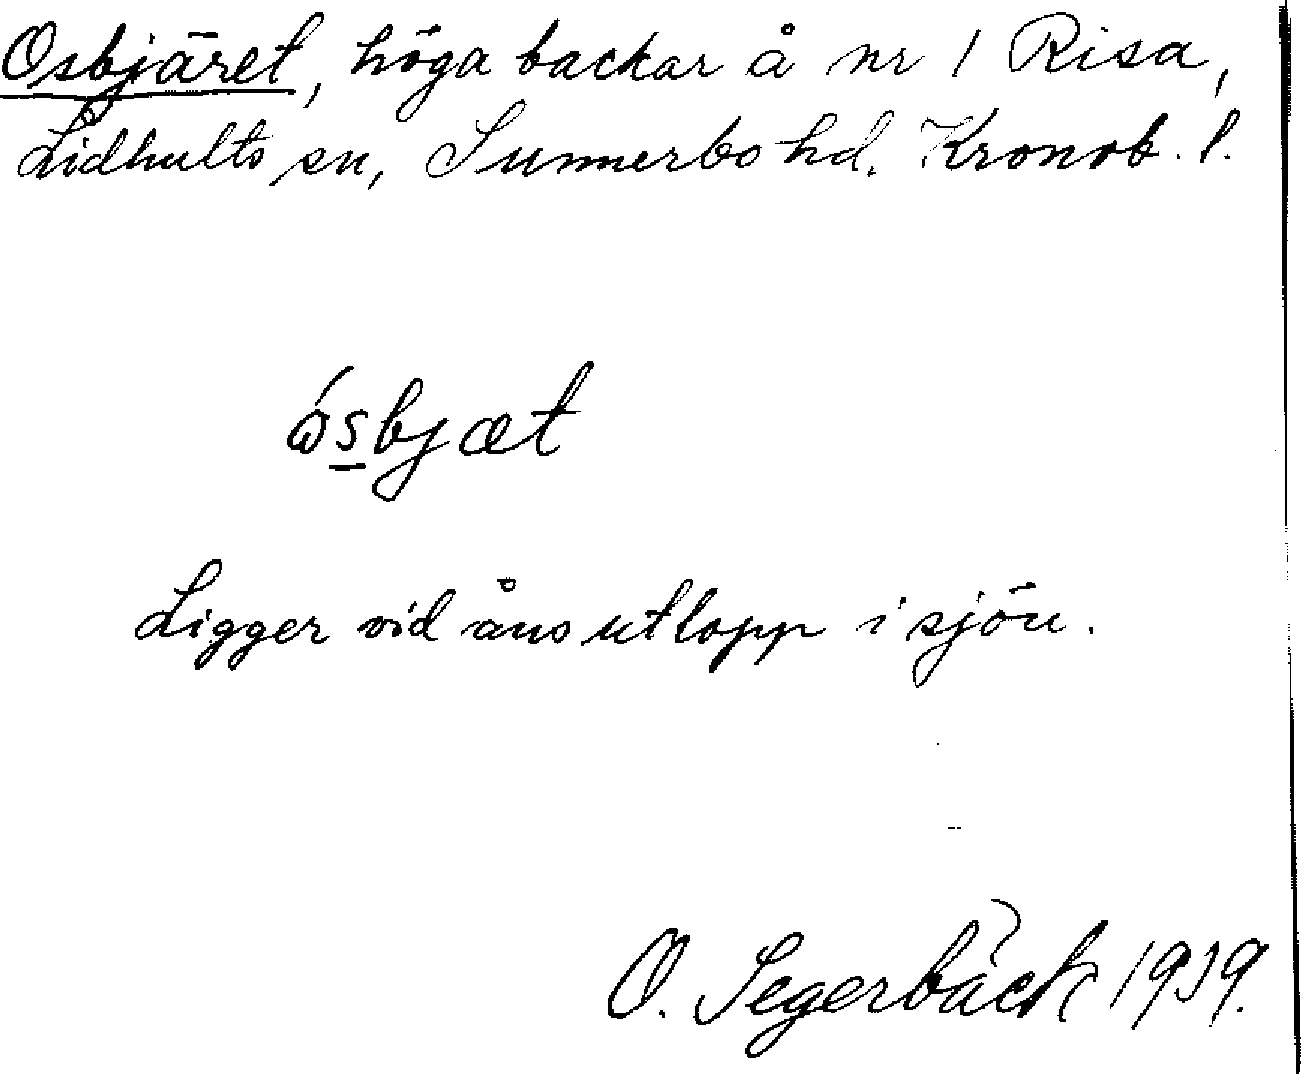 Osbjäret, höga backar å nr 1 Risa,
Lidhults sn, Sunnerbo hd. Kronob. l.
ós̲bjæt
Ligger vid åns utlopp i sjön.
O. Segerbäck 1939.